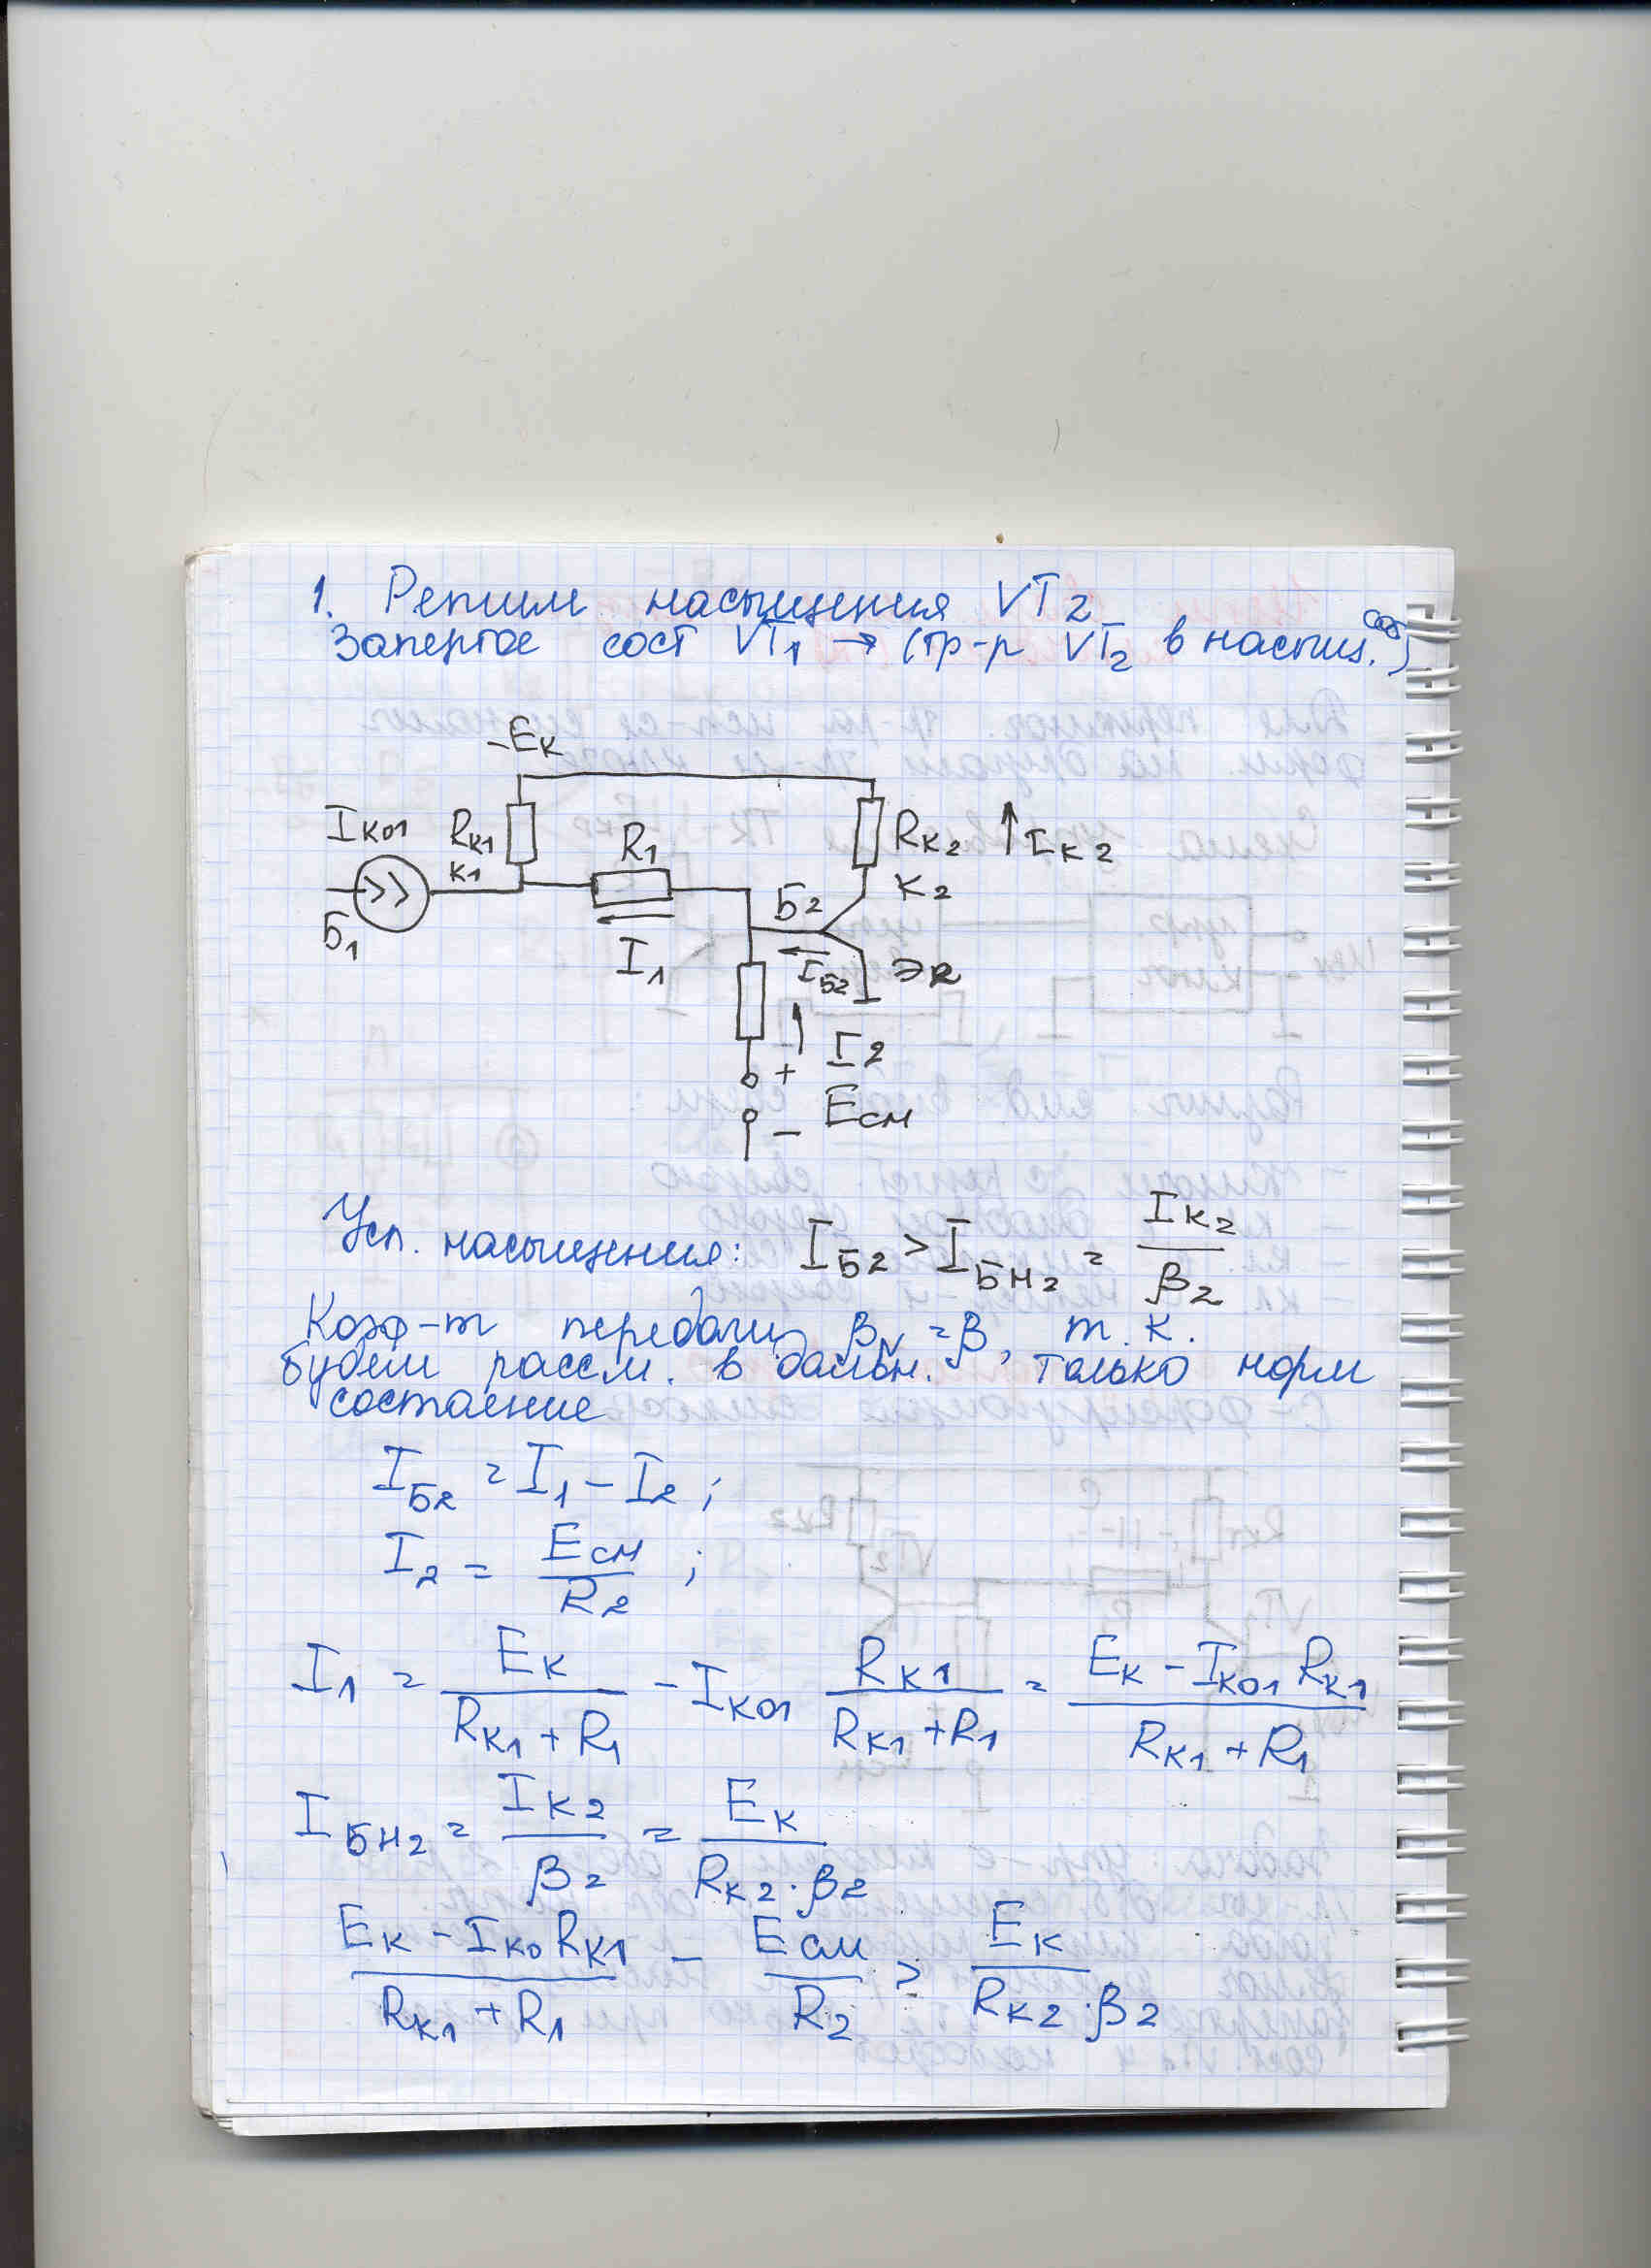 1. Режим насыщения VT2
Запертое сост VT1 → (тр-р VT2 в насыщ. сос)
-Eк
Iк01
Rк1
R1
Rк2
↑ Iк2
к1
Б2
К2
Б1
I1
IБ2
Э2
I2
+
Eсм
-
Усл. насыщения: IБ2 > IБН2 = Iк2 / β2
Коэф-т передачи βN = β, т.к.
будем рассм. в дальн. только норм
состаение
IБ2 = I1 - I2;
I2 = Eсм / R2;
I1 = Eк / (Rк1 + R1) - Iк01 Rк1 / (Rк1 + R1) = (Eк - Iк01 Rк1) / (Rк1 + R1)
IБН2 = Iк2 / β2 = Eк / (Rк2 · β2)
(Eк - Iк0 Rк1) / (Rк1 + R1) - Eсм / R2 > Eк / (Rк2 · β2)